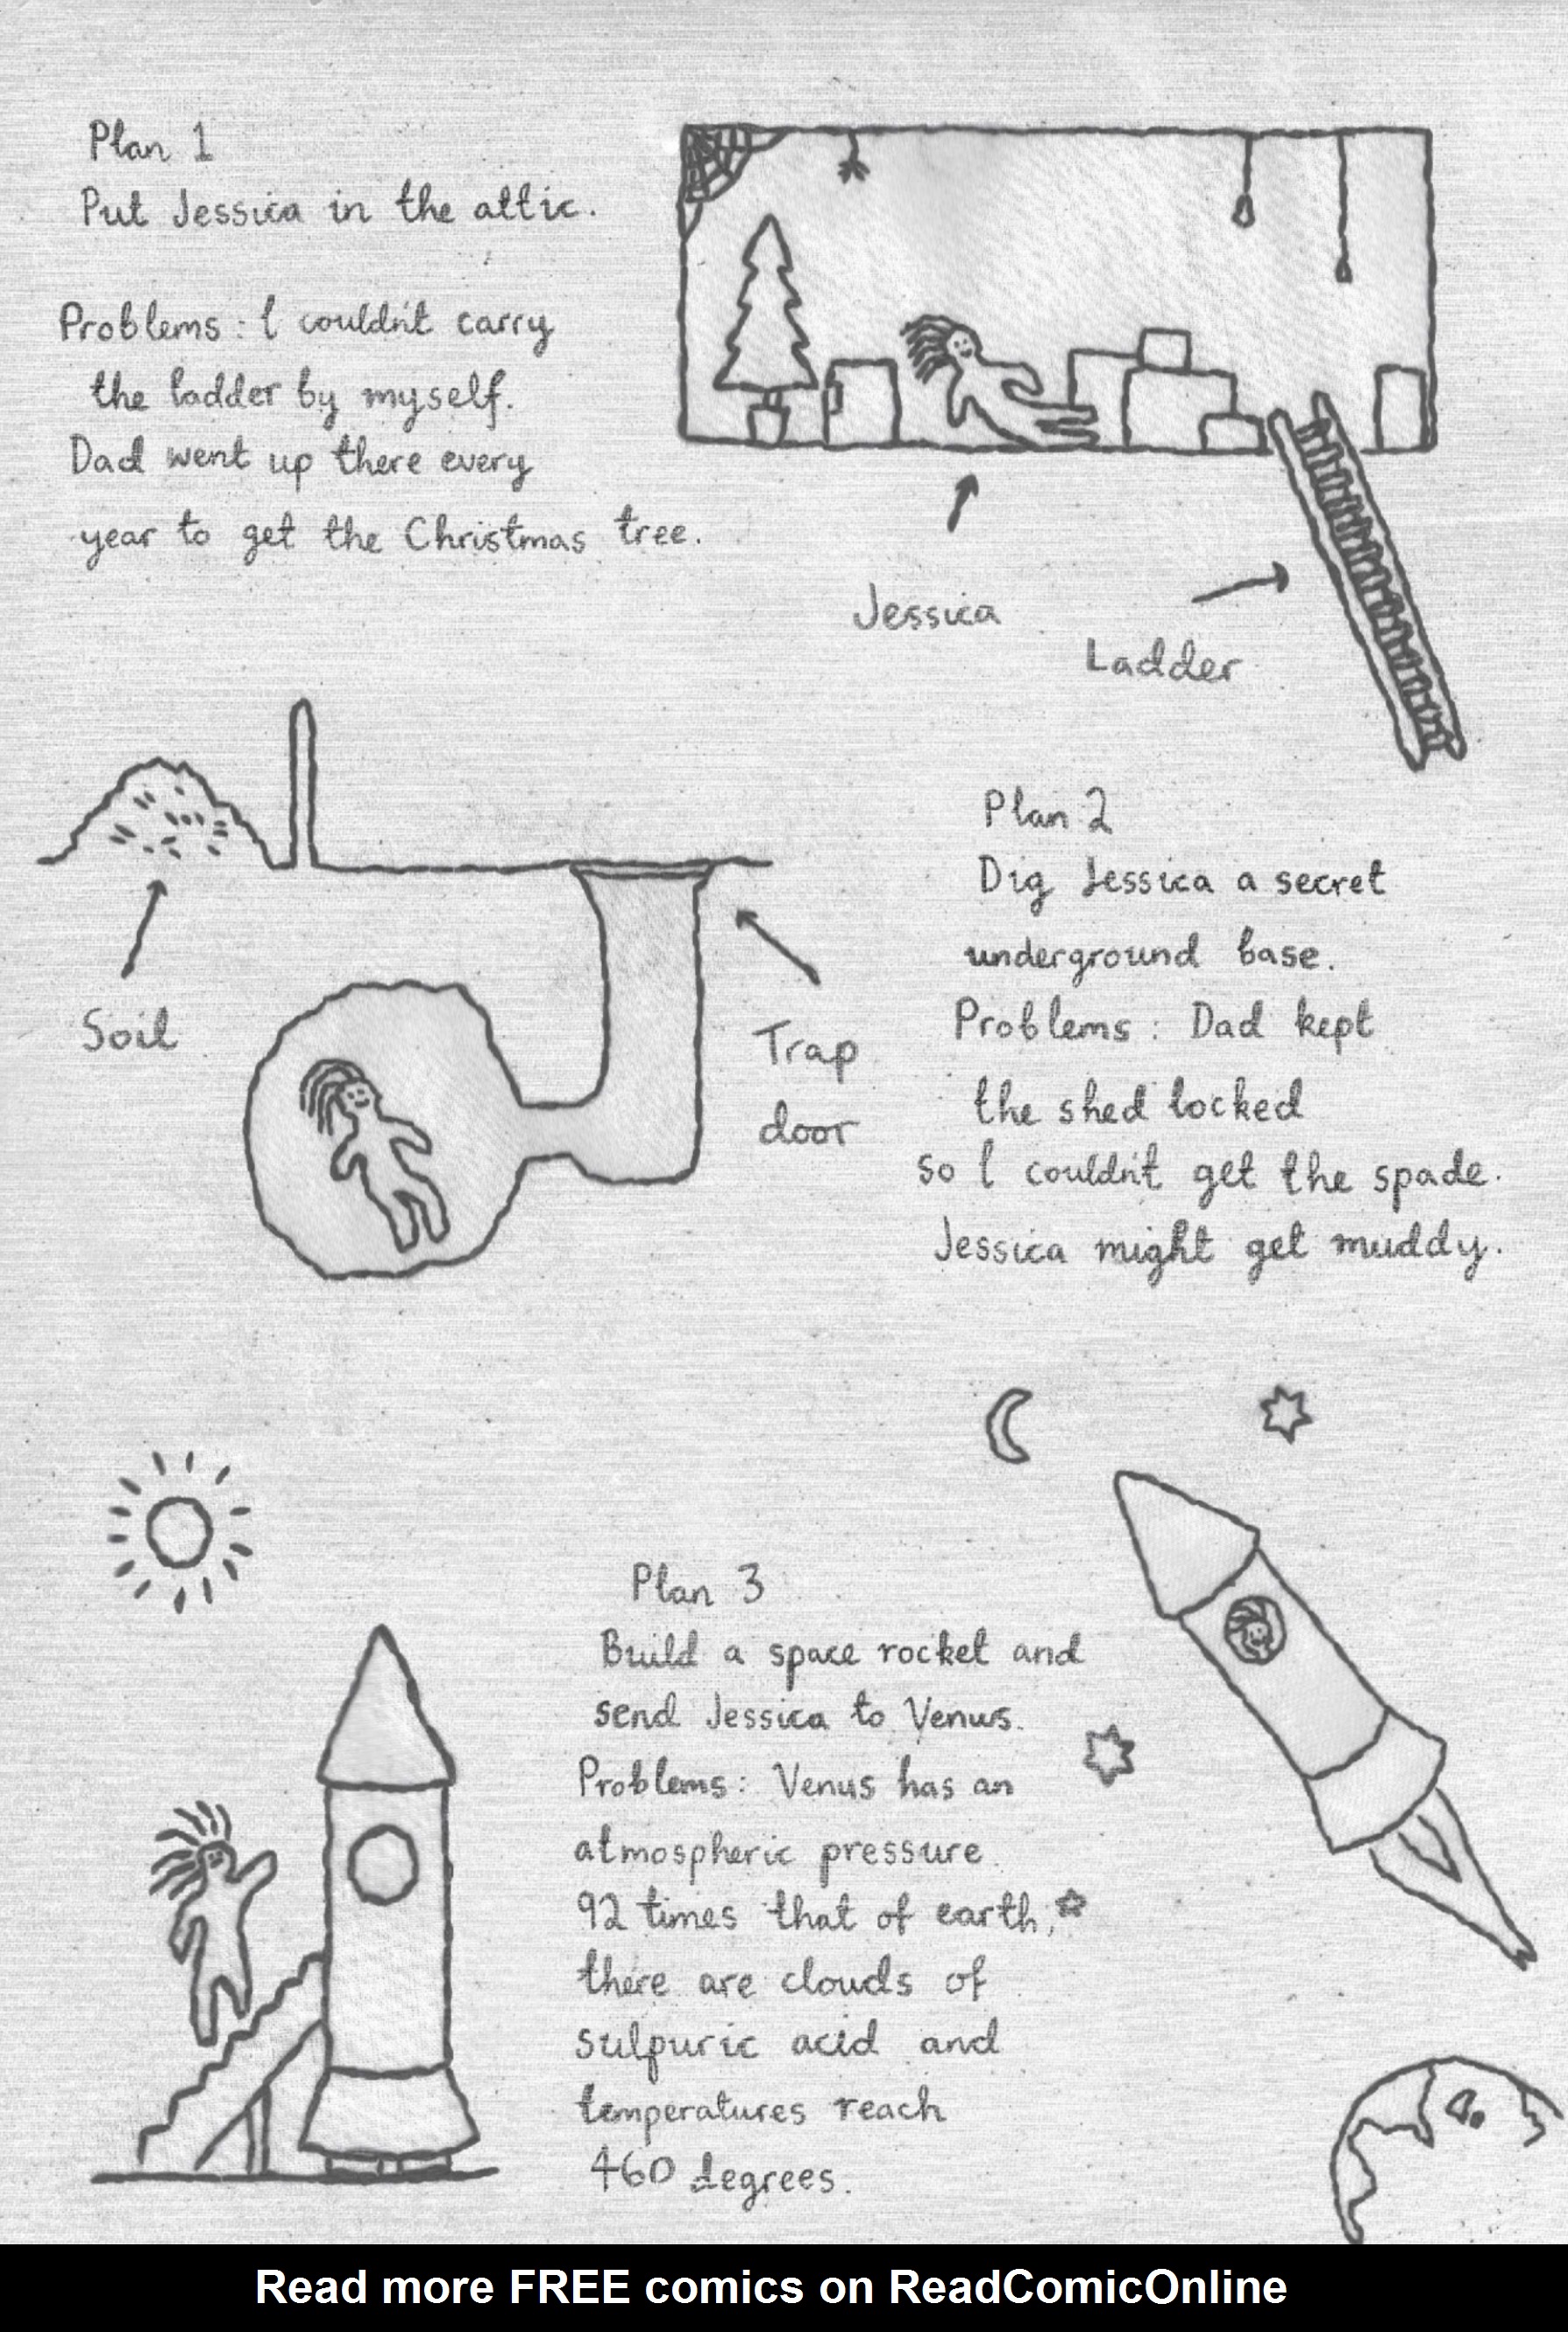 Plan 1
Put Jessica in the attic.
Problems: I couldn't carry
the ladder by myself.
Dad went up there every
year to get the Christmas tree.
Jessica
Ladder
Soil
Trap
door
Plan 2
Dig Jessica a secret
underground base.
Problems: Dad kept
the shed locked
so I couldn't get the spade.
Jessica might get muddy.
Plan 3
Build a space rocket and
send Jessica to Venus.
Problems: Venus has an
atmospheric pressure
92 times that of earth,
there are clouds of
sulpuric acid and
temperatures reach
460 degrees.
Read more FREE comics on ReadComicOnline